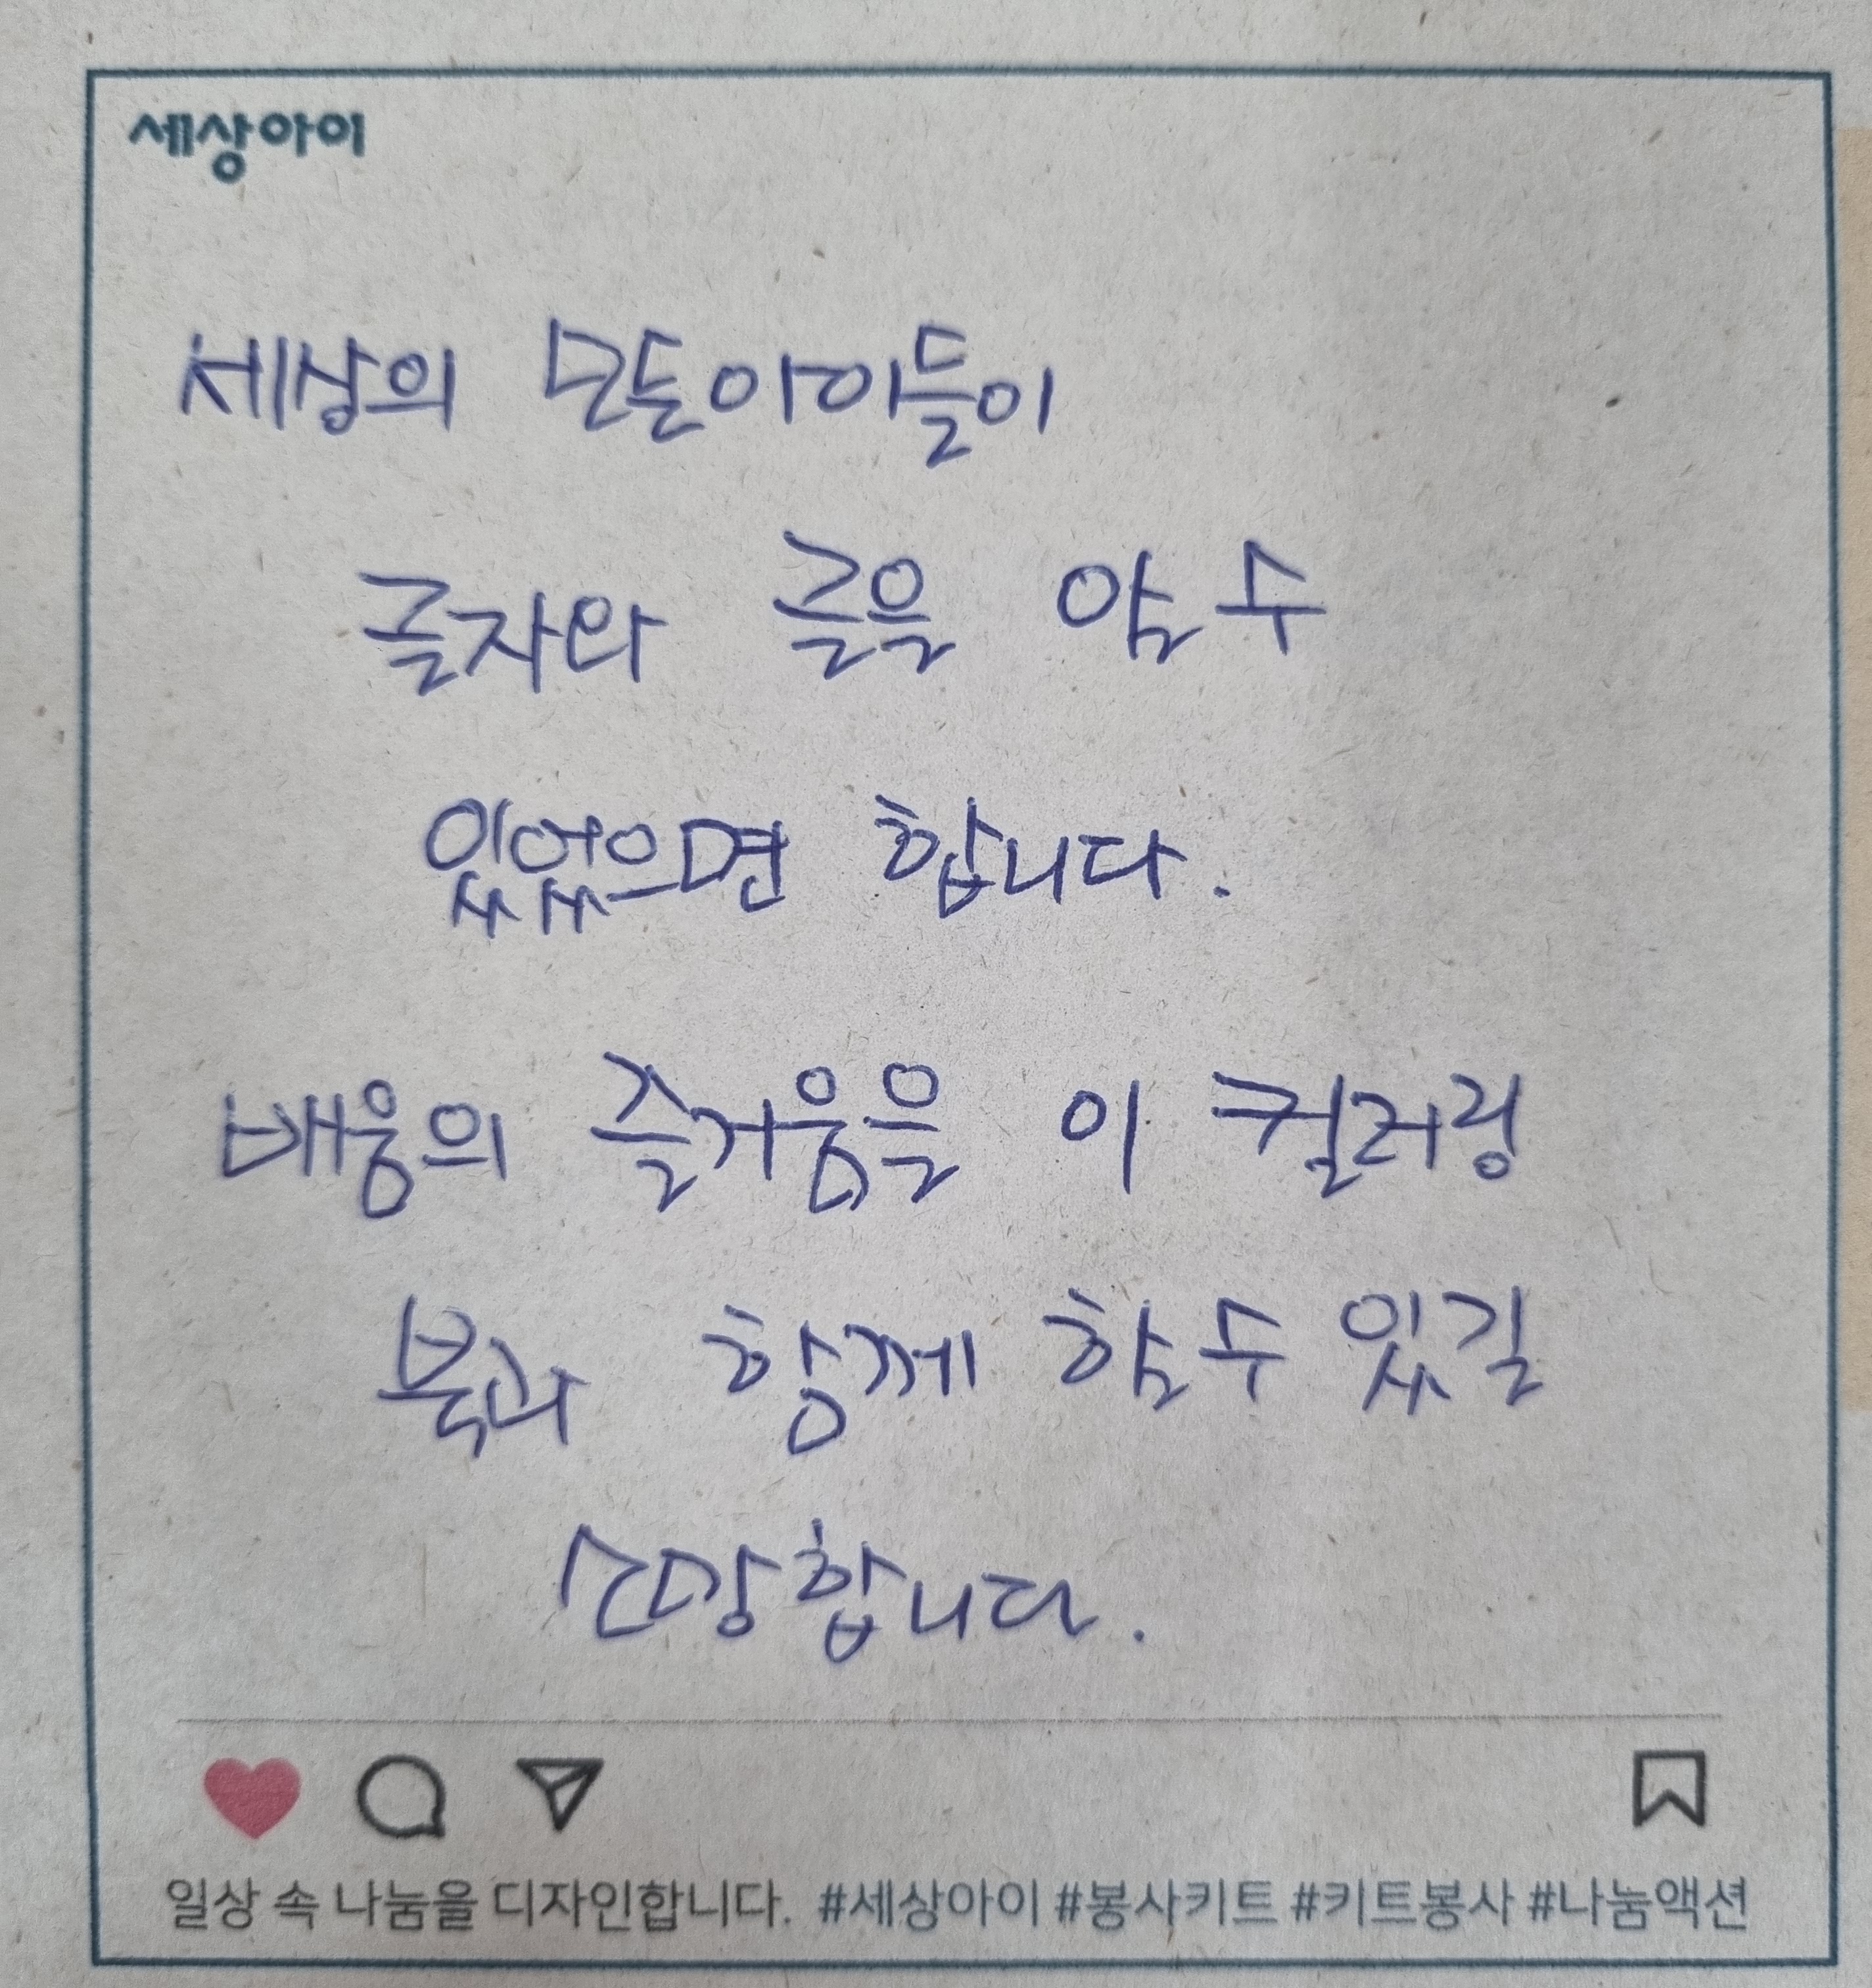 세상아이
세상의 모든아이들이
글자와 글을 알 수
있었으면 합니다.
배움의 즐거움을 이 컬러링
북과 함께 할 수 있길
소망합니다.
일상 속 나눔을 디자인합니다. #세상아이 #봉사키트 #키트봉사 #나눔액션